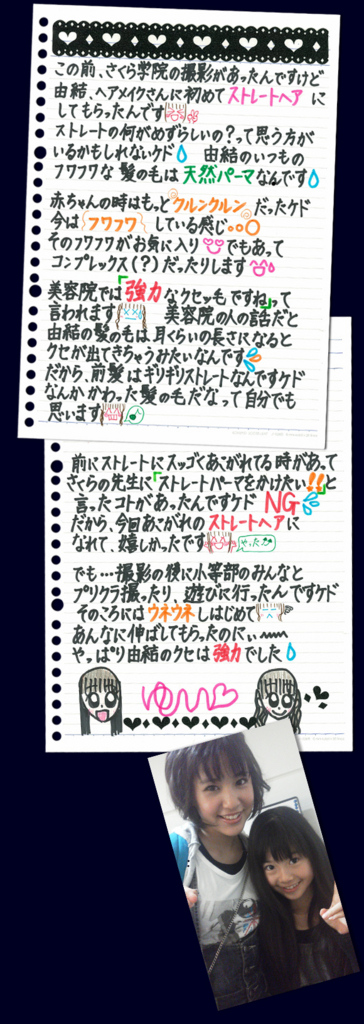 この前、さくら学院の撮影があったんですけど
由結、ヘアメイクさんに初めてストレートヘア に
してもらったんです
ストレートの何がめずらしいの?って思う方が
いるかもしれないケド 由結のいつもの
フワフワな 髪の毛は 天然パーマなんです
赤ちゃんの時はもっと クルンクルン だったケド
今は フワフワ している感じ。。○
そのフワフワがお気に入り でもあって
コンプレックス(?)だったりします
美容院では「強力なクセッ毛ですね」って
言われます 美容院の人の話だと
由結の髪の毛は、耳ぐらいの長さになると
クセが出てきちゃうみたいなんです
だから、前髪はギリギリストレートなんですケド
なんかかわった髪の毛だなって自分でも
思います
前にストレートにスッゴくあこがれてる時があって
さくらの先生に「ストレートパーマをかけたい!!」と
言ったコトがあったんですケド NG
だから、今回あこがれのストレートヘアに
なれて、嬉しかったです やったぁ
でも…撮影の後に小等部のみんなと
プリクラ撮ったり、遊びに行ったんですケド
そのころには ウネウネ しはじめて
あんなに伸ばしてもらったのにぃ〜
やっぱり由結のクセは 強力でした